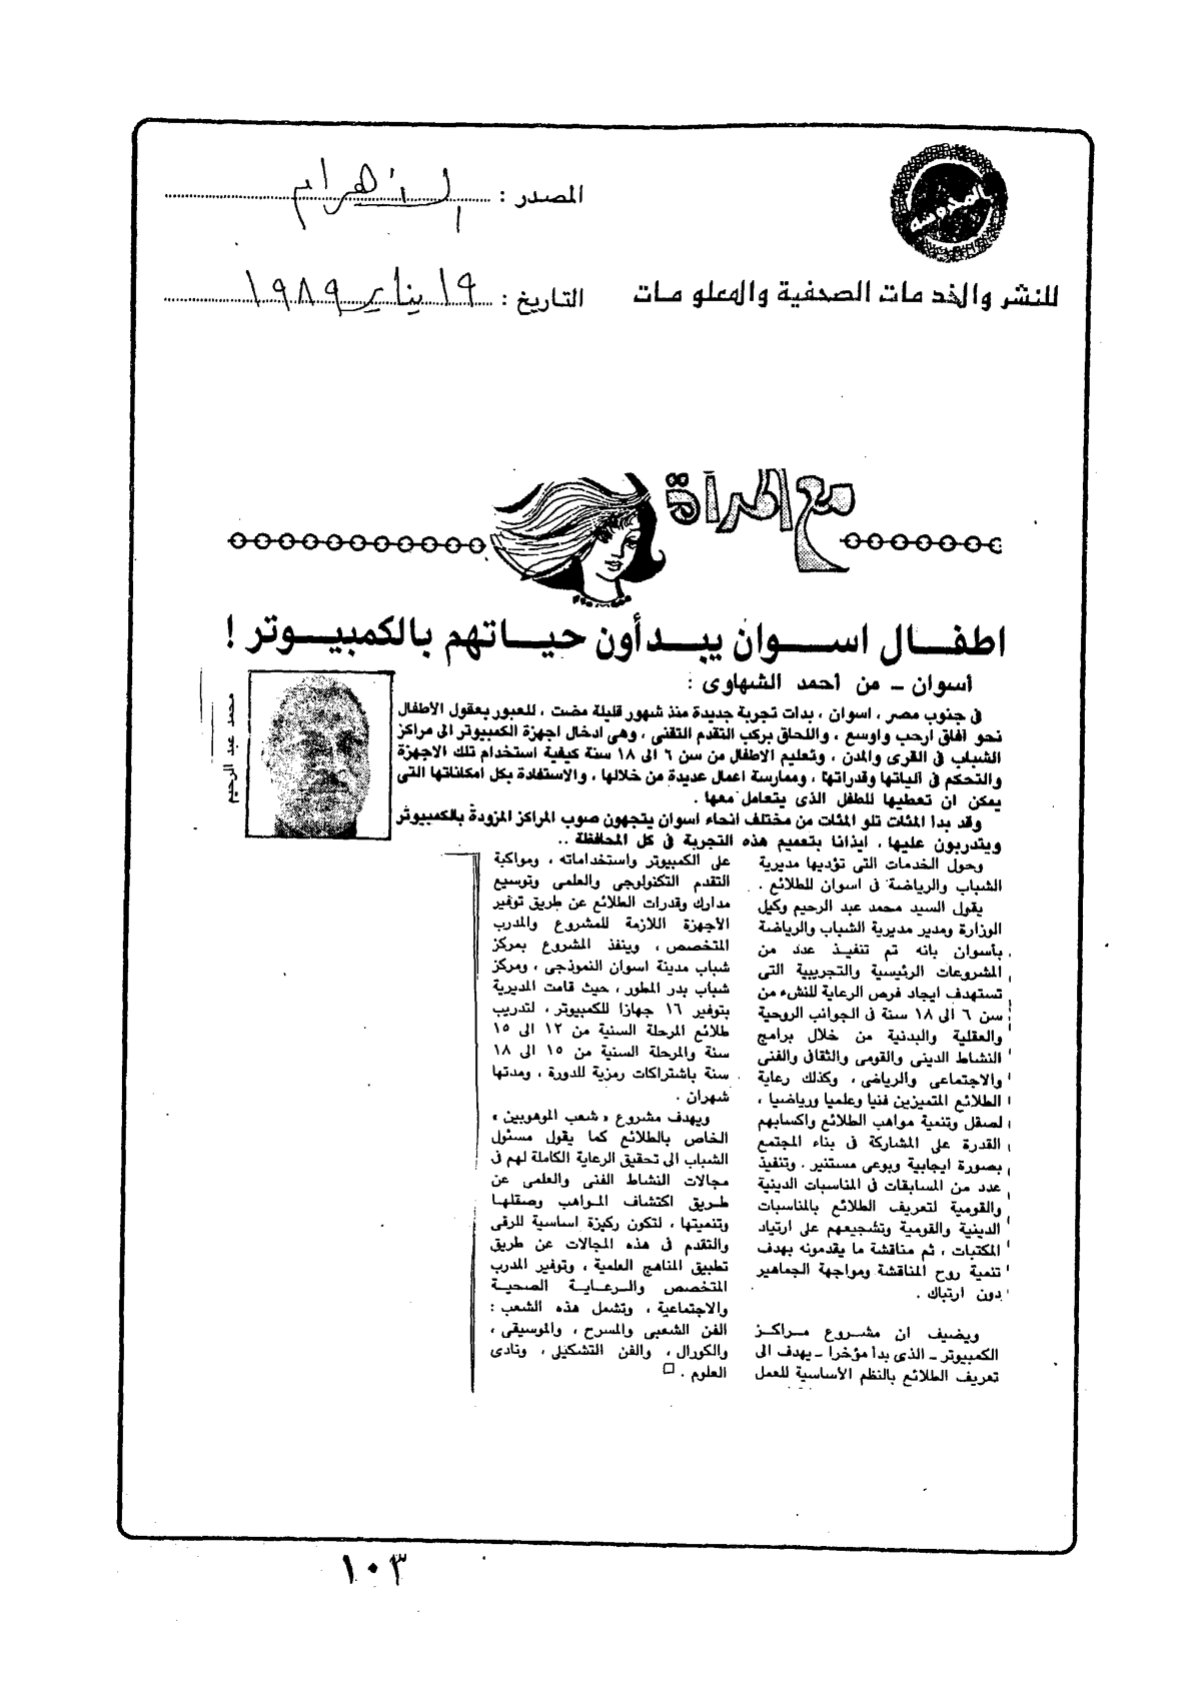 المحروسة
المصدر : الأهرام
للنشر والخدمات الصحفية والمعلومات
التاريخ : ١٩ يناير ١٩٨٩
مع المرأة
اطفال اسوان يبدأون حياتهم بالكمبيوتر !
أسوان ـ من أحمد الشهاوى :
محمد عبد الرحيم
فى جنوب مصر ، اسوان ، بدات تجربة جديدة منذ شهور قليلة مضت ، للعبور بعقول الأطفال
نحو افاق ارحب واوسع ، واللحاق بركب التقدم التقنى ، وهى ادخال اجهزة الكمبيوتر الى مراكز
الشباب فى القرى والمدن ، وتعليم الاطفال من سن ٦ الى ١٨ سنة كيفية استخدام تلك الاجهزة
والتحكم فى آلياتها وقدراتها ، وممارسة اعمال عديدة من خلالها ، والاستفادة بكل امكاناتها التى
يمكن ان تعطيها للطفل الذى يتعامل معها .
وقد بدا المئات تلو المئات من مختلف انحاء اسوان يتجهون صوب المراكز المزودة بالكمبيوتر
ويتدربون عليها ، ايذانا بتعميم هذه التجربة فى كل المحافظة ..
وحول الخدمات التى تؤديها مديرية
الشباب والرياضة فى اسوان للطلائع .
يقول السيد محمد عبد الرحيم وكيل
الوزارة ومدير مديرية الشباب والرياضة
بأسوان بانه تم تنفيذ عدد من
المشروعات الرئيسية والتجريبية التى
تستهدف ايجاد فرص الرعاية للنشء من
سن ٦ الى ١٨ سنة فى الجوانب الروحية
والعقلية والبدنية من خلال برامج
النشاط الدينى والقومى والثقافى والفنى
والاجتماعى والرياضى ، وكذلك رعاية
الطلائع المتميزين فنيا وعلميا ورياضيا ،
لصقل وتنمية مواهب الطلائع واكسابهم
القدرة على المشاركة فى بناء المجتمع
بصورة ايجابية وبوعى مستنير . وتنفيذ
عدد من المسابقات فى المناسبات الدينية
والقومية لتعريف الطلائع بالمناسبات
الدينية والقومية وتشجيعهم على ارتياد
المكتبات ، ثم مناقشة ما يقدمونه بهدف
تنمية روح المناقشة ومواجهة الجماهير
دون ارتباك .
ويضيف ان مشروع مراكز
الكمبيوتر ـ الذى بدأ مؤخرا ـ يهدف الى
تعريف الطلائع بالنظم الأساسية للعمل
على الكمبيوتر واستخداماته ، ومواكبة
التقدم التكنولوجى والعلمى وتوسيع
مدارك وقدرات الطلائع عن طريق توفير
الأجهزة اللازمة للمشروع والمدرب
المتخصص ، وينفذ المشروع بمركز
شباب مدينة اسوان النموذجى ، ومركز
شباب بدر المطور ، حيث قامت المديرية
بتوفير ١٦ جهازا للكمبيوتر ، لتدريب
طلائع المرحلة السنية من ١٢ الى ١٥
سنة والمرحلة السنية من ١٥ الى ١٨
سنة باشتراكات رمزية للدورة ، ومدتها
شهران .
ويهدف مشروع « شعب الموهوبين »
الخاص بالطلائع كما يقول مسئول
الشباب الى تحقيق الرعاية الكاملة لهم فى
مجالات النشاط الفنى والعلمى عن
طريق اكتشاف المواهب وصقلها
وتنميتها ، لتكون ركيزة اساسية للرقى
والتقدم فى هذه المجالات عن طريق
تطبيق المناهج العلمية ، وتوفير المدرب
المتخصص والرعاية الصحية
والاجتماعية ، وتشمل هذه الشعب :
الفن الشعبى والمسرح ، والموسيقى ،
والكورال ، والفن التشكيلى ، ونادى
العلوم . □
١٠٣